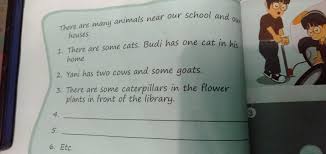 There are many animals near our school and our
houses.
1. There are some cats. Budi has one cat in his
home
2. Yani has two cows and some goats.
3. There are some caterpillars in the flower
plants in front of the library.
4.
5.
6. Etc